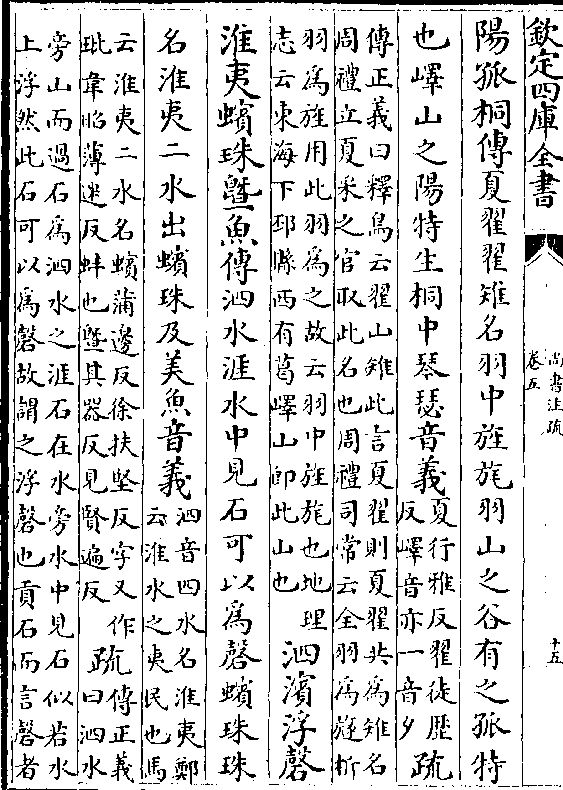 欽定四庫全書
尚書注疏
卷五
十五
陽孤桐傳夏翟翟雉名羽中旌旄羽山之谷有之孤特
也嶧山之陽特生桐中琴瑟音義
夏行雅反翟徒歷
反嶧音亦一音夕
疏
傳正義曰釋鳥云翟山雉此言夏翟則夏翟共為雉名
周禮立夏采之官取此名也周禮司常云全羽為旞析
羽為旌用此羽為之故云羽中旌旄也地理
志云東海下邳縣西有葛嶧山即此山也
泗濱浮磬
淮夷蠙珠曁魚傳泗水涯水中見石可以為磬蠙珠珠
名淮夷二水出蠙珠及美魚音義
泗音四水名淮夷鄭
云淮水之夷民也馬
云淮夷二水名蠙蒲邊反徐扶堅反字又作
玭韋昭薄迷反蚌也曁其器反見賢遍反
疏
傳正義
曰泗水
旁山而過石為泗水之涯石在水旁水中見石似若水
上浮然此石可以為磬故謂之浮磬也貢石而言磬者